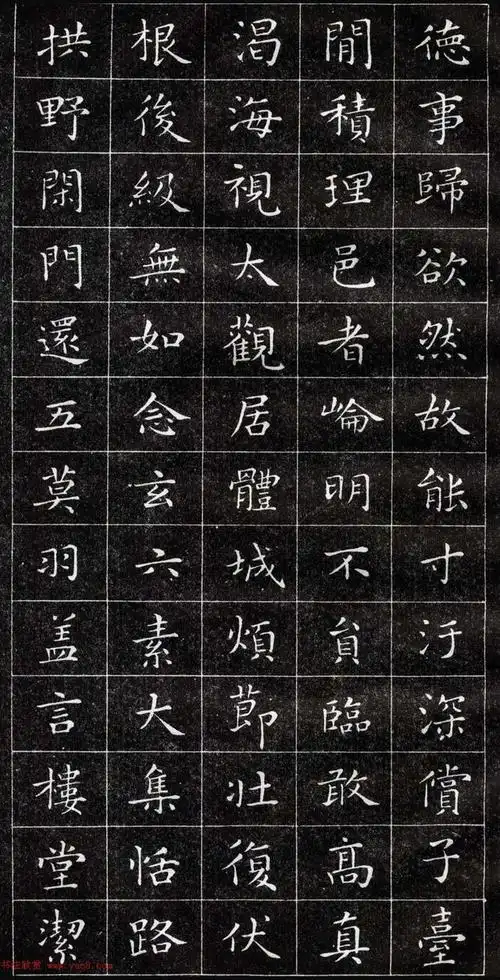 徳事歸欲然故能寸汙深償子臺
閒積理邑者崘明不負臨敢高真
渴海視太觀居體城煩節壯復伏
根後級無如念玄六素大集恬路
拱野閑門還五莫羽盖言樓堂潔
书法欣赏 www.yac8.com